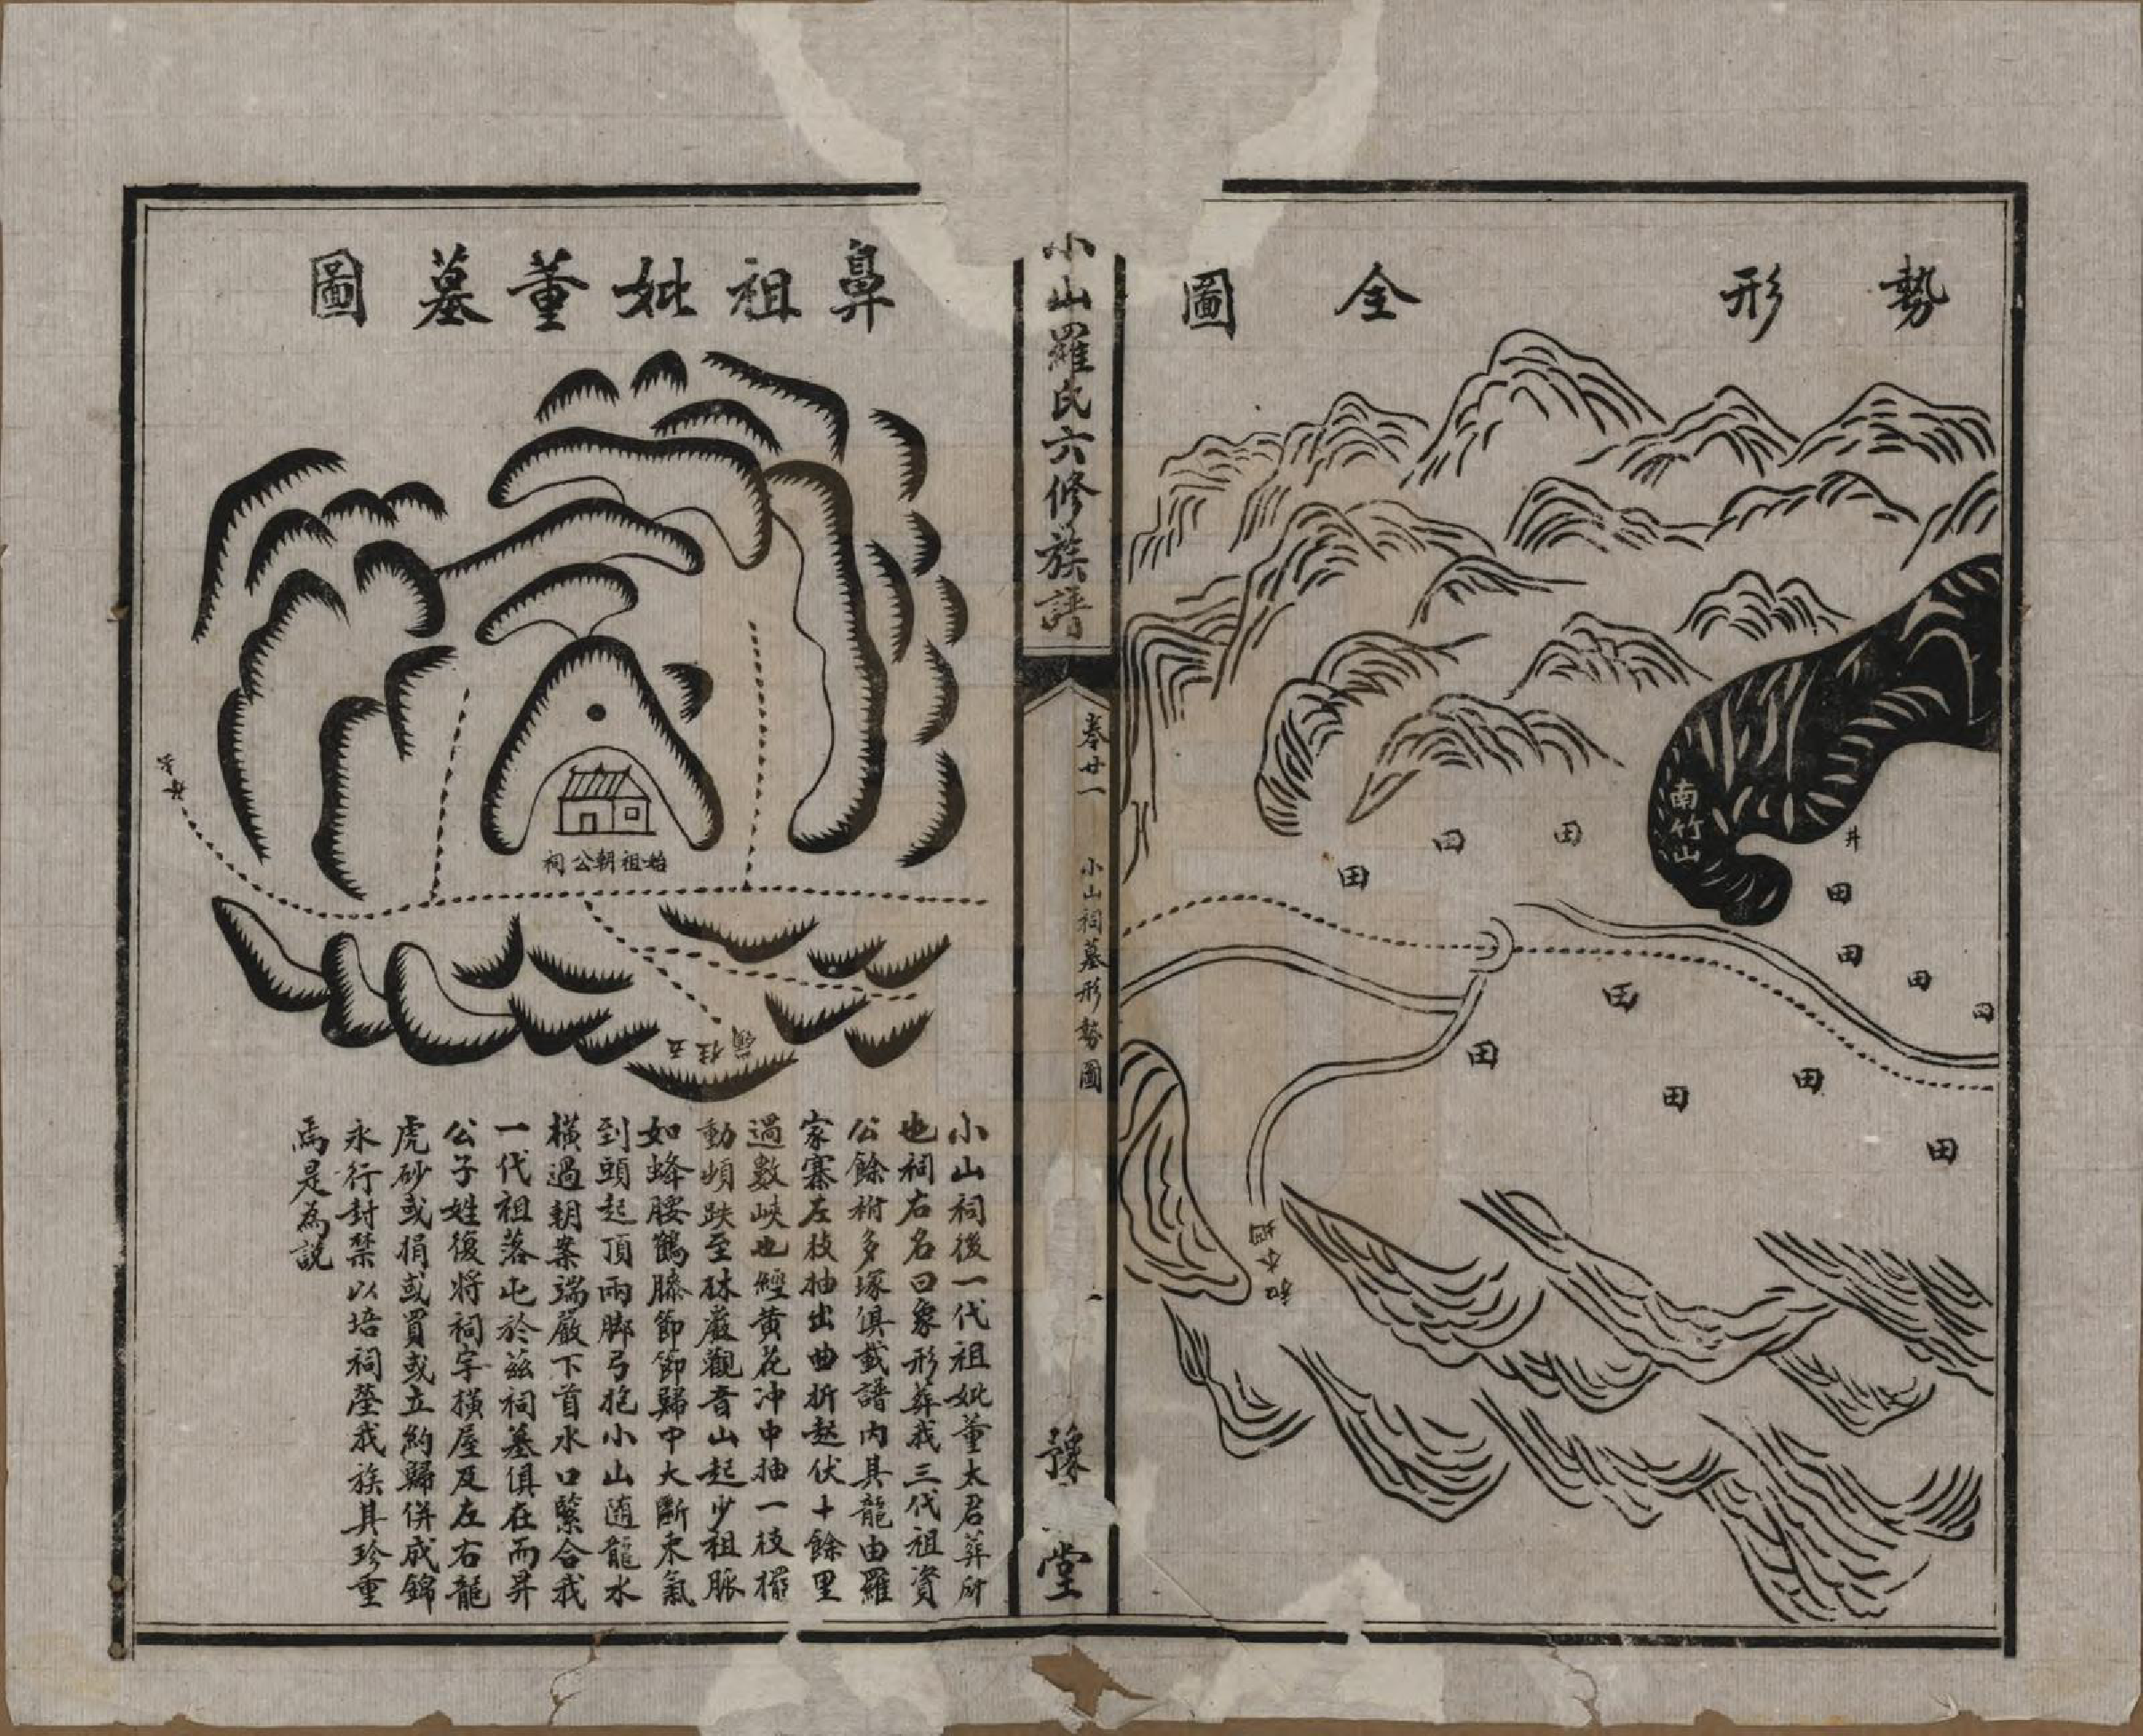 勢形全圖
南竹山
井
田
田
田
田
田
田
田
田
田
田
田
田
田
小山羅氏六修族譜
卷廿一
小山祠墓形勢圖
豫
堂
鼻祖妣董墓圖
始祖朝公祠
五桂嶺
小山祠後一代祖妣董太君葬所
也祠右名曰象形葬我三代祖資
公餘祔多塚俱載譜内其龍由羅
家寨左枝抽出曲折起伏十餘里
過數峽也經黄花冲中抽一枝擺
動頓跌至砵嚴觀音山起少祖脈
如蜂腰鶴膝節節歸中大斷束氣
到頭起頂兩脚弓抱小山随龍水
横過朝案端嚴下首水口緊合我
一代祖落屯於兹祠墓俱在而昇
公子姓復將祠宇横屋及左右龍
虎砂或捐或買或立約歸併成錦
永行封禁以培祠塋我族其珍重
焉是為説